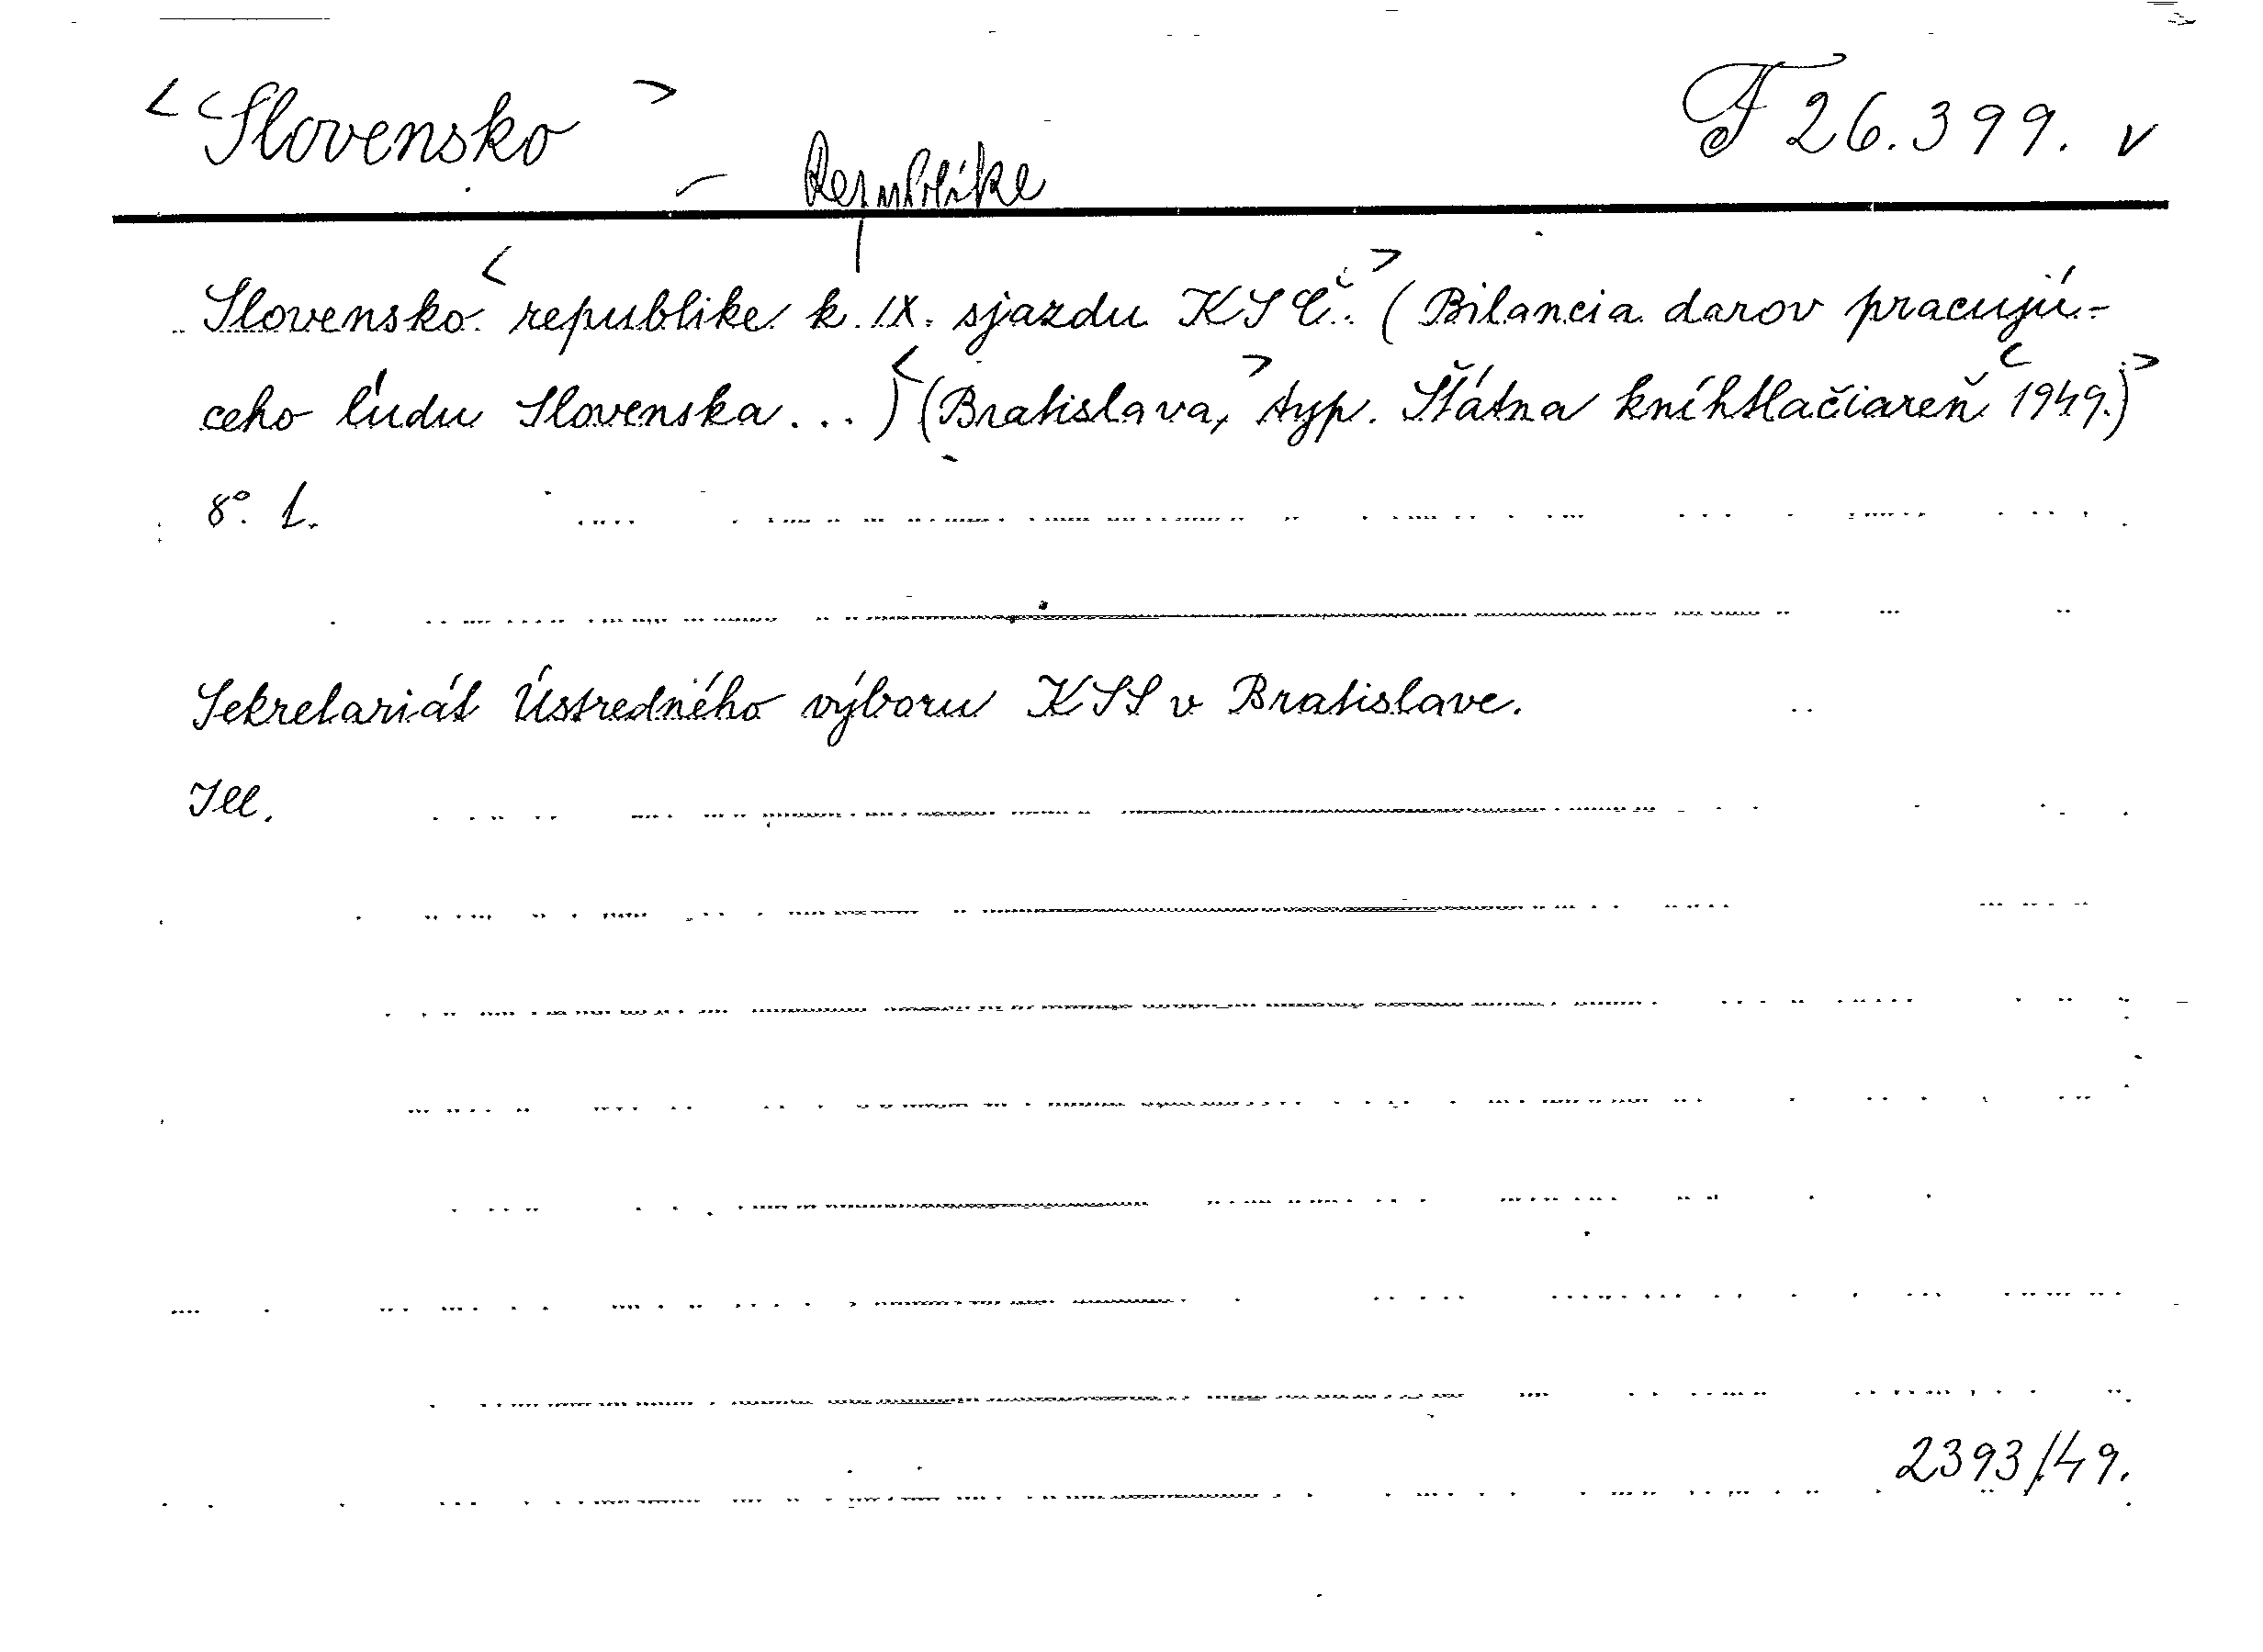 <Slovensko> F 26.399. v
– Republike
Slovensko <republike k IX. sjazdu KSČ.> (Bilancia darov pracujú-
ceho ľudu Slovenska...) <(Bratislava,> typ. Štátna kníhtlačiareň <1949.)>
8°. L.
Sekretariát Ústredného výboru KSS v Bratislave.
Ill.
2393/49.